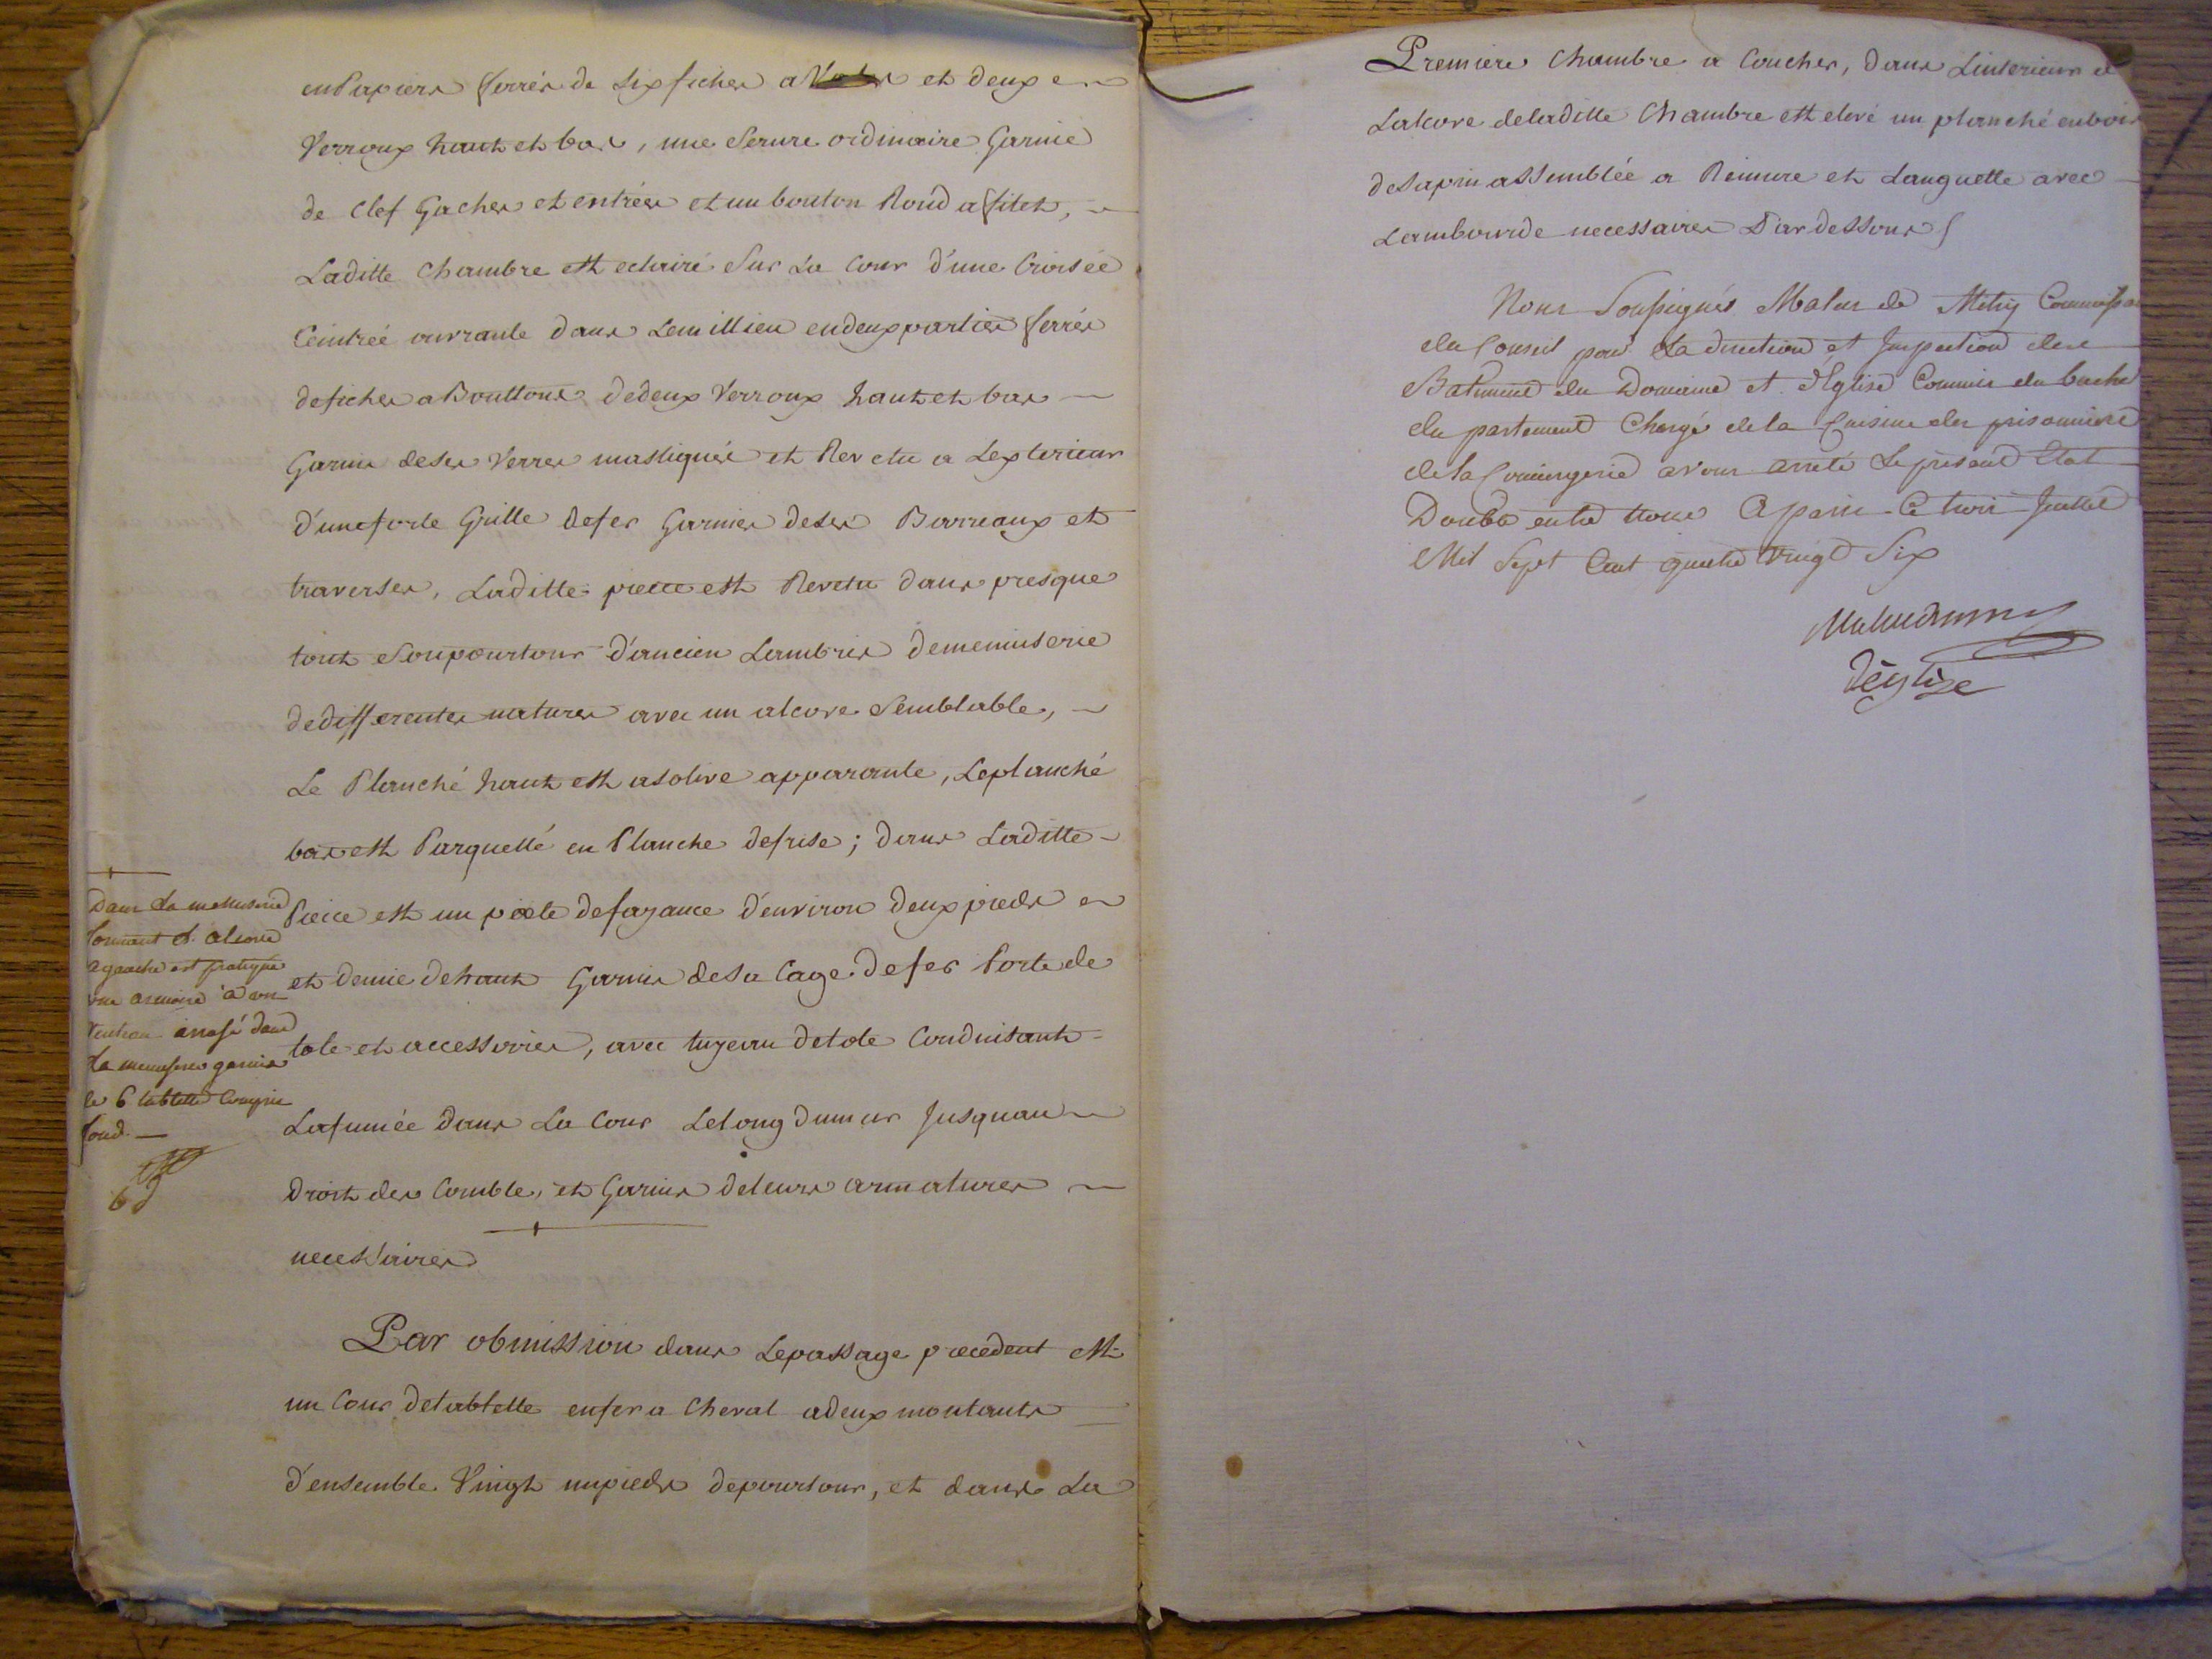 en Papiers ferrés de six fiches a et deux
Verroux haut et bas, une Serure ordinaire Garnie
de Clef Gaches et entrées et un bouton Rond a filet,
Laditte Chambre est eclairé Sur La Cour d'une Croisée
Ceintrée ouvrante dans Lemillieu endeux parties ferrés
defiches a Bouttons dedeux Verroux haut et bas
Garnie deses Verres mastiqués et Revetu a Lexterieur
d'uneforte Grille defer Garnies deses Barreaux et
traverses, Laditte piece est Revetu dans presque
tout Sonpourtour d'ancien Lambris demenuiserie
dedifferentes natures avec un alcove Semblable,
Le Planché haut est asolive apparante, Leplanché
bas est Parquetté en Planche defrise; dans Laditte
Pieice est un poële defayance d'environ deux pieds
et demie dehaut Garnie desa Cage defer Porte de
tole et accessoires, avec tuyeau detole Conduisant
Lafumée dans La Cour Lelong dumur Jusquau
droit des Comble, et Garnis deleurs armatures
necessaires
dans La menuiserie
formant l'alcove
a gauche est pratiqué
une armoire à un
Venteau arrasé dans
La menuiserie garnie
de 6 tablettes Compris
fond.
Par obmission dans Lepassage precedent
un Cour detablette enfer a Cheval adeux montants
d'ensemble Vingt unpieds depourtour, et dans La
Premiere Chambre a Coucher, dans Linterieur de
Lalcove deladitte Chambre est elevé un planché enbois
desapin assemblée a Reinure et Languette avec
Lambourde necessaires Par dessous
Nous Soussignés Malus de Mitry
du Conseil pour La direction et Inspection des
Batiments du Domaine et Déglise Commis du
du partement Chargé de la Cuisine des prisonniers
de la Conciergerie avons arreté Le présent Etat
Double entre nous A paris Ce trois Juillet
Mil Sept Cent quatre Vingt Six
Déglize